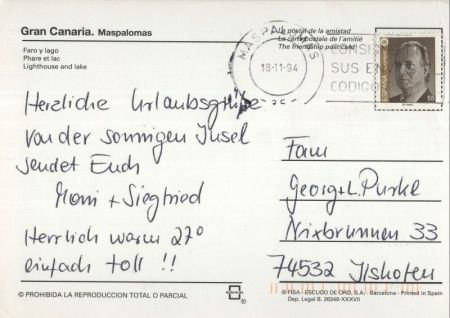 Gran Canaria. Maspalomas
Faro y lago
Phare et lac
Lighthouse and lake
La postal de la amistad
La carte postale de l'amitié
The friendship postcard
MASPALOMAS
18-11-94
CONSIG
SUS EN
CODIGO
ESPAÑA
55
Herzliche Urlaubsgrüße
von der sonnigen Insel
sendet Euch
Moni + Siegfried
Herrlich warm 27°
einfach toll !!
Fam
Georg + L.
Nixbrunnen 33
74532 Ilshofen
© PROHIBIDA LA REPRODUCCION TOTAL O PARCIAL
© FISA - ESCUDO DE ORO, S.A. - Barcelona - Printed in Spain
Dep. Legal B. 26349-XXXVII